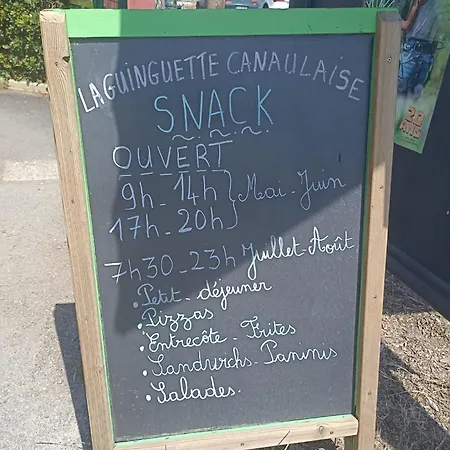 LA GUINGUETTE CANAULAISE
SNACK
OUVERT
9h - 14h
17h - 20h
Mai - Juin
7h30 - 23h Juillet - Août
. Petit - déjeuner
. Pizzas
. Entrecôte - Frites
. Sandwichs - Paninis
. Salades.
20
ANS